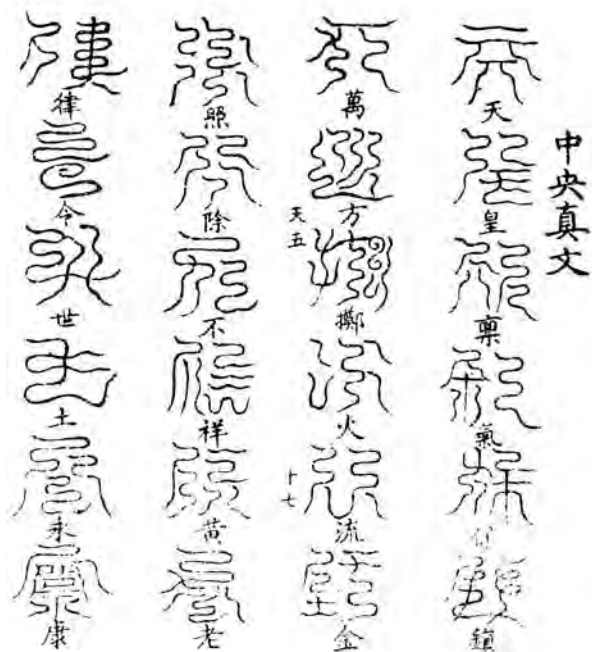 中央真文
天皇稟氣鎮
萬方擲火流金
天五
十七
照除不祥黃老
律令世土永康